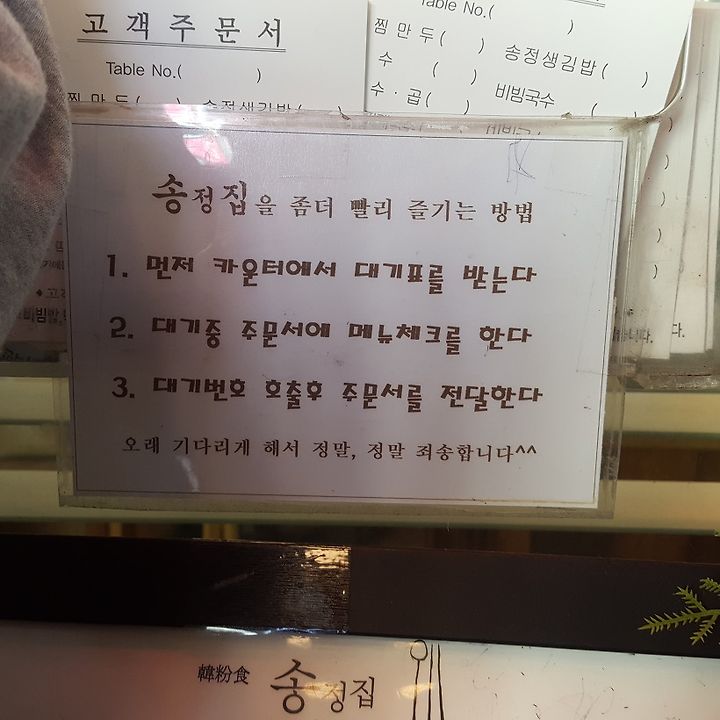 고객주문서
Table No.( )
찜만두( ) 송정생김밥(
Table No.( )
찜만두( ) 송정생김밥( )
수 ( )
수·곱( ) 비빔국수 ( )
송정집을 좀더 빨리 즐기는 방법
1. 먼저 카운터에서 대기표를 받는다
2. 대기중 주문서에 메뉴체크를 한다
3. 대기번호 호출후 주문서를 전달한다
오래 기다리게 해서 정말, 정말 죄송합니다^^
韓粉食 송정집